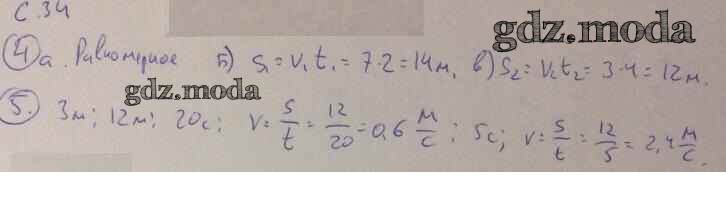 с. 34
gdz.moda
④ а. Равномерное б) S₁ = V₁ t₁ = 7·2 = 14 м, в) S₂ = V₂ t₂ = 3·4 = 12 м.
gdz.moda
⑤. 3м; 12м; 20с; V = S/t = 12/20 = 0,6 м/с; 5с; V = S/t = 12/5 = 2,4 м/с.